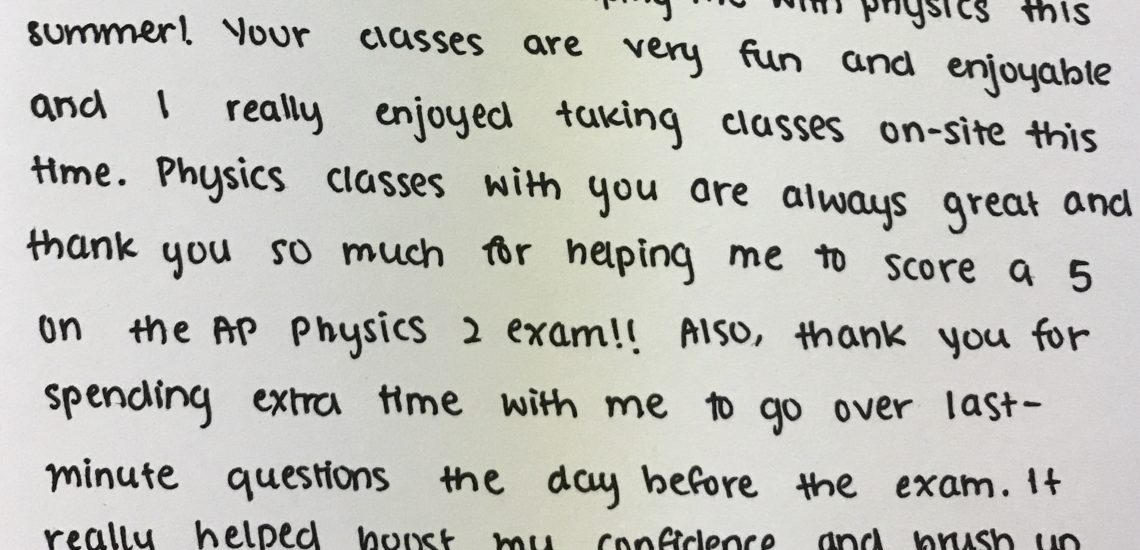 me with physics this
summer! Your classes are very fun and enjoyable
and I really enjoyed taking classes on-site this
time. Physics classes with you are always great and
thank you so much for helping me to score a 5
on the AP Physics 2 exam!! Also, thank you for
spending extra time with me to go over last-
minute questions the day before the exam. It
really helped boost my confidence and brush up